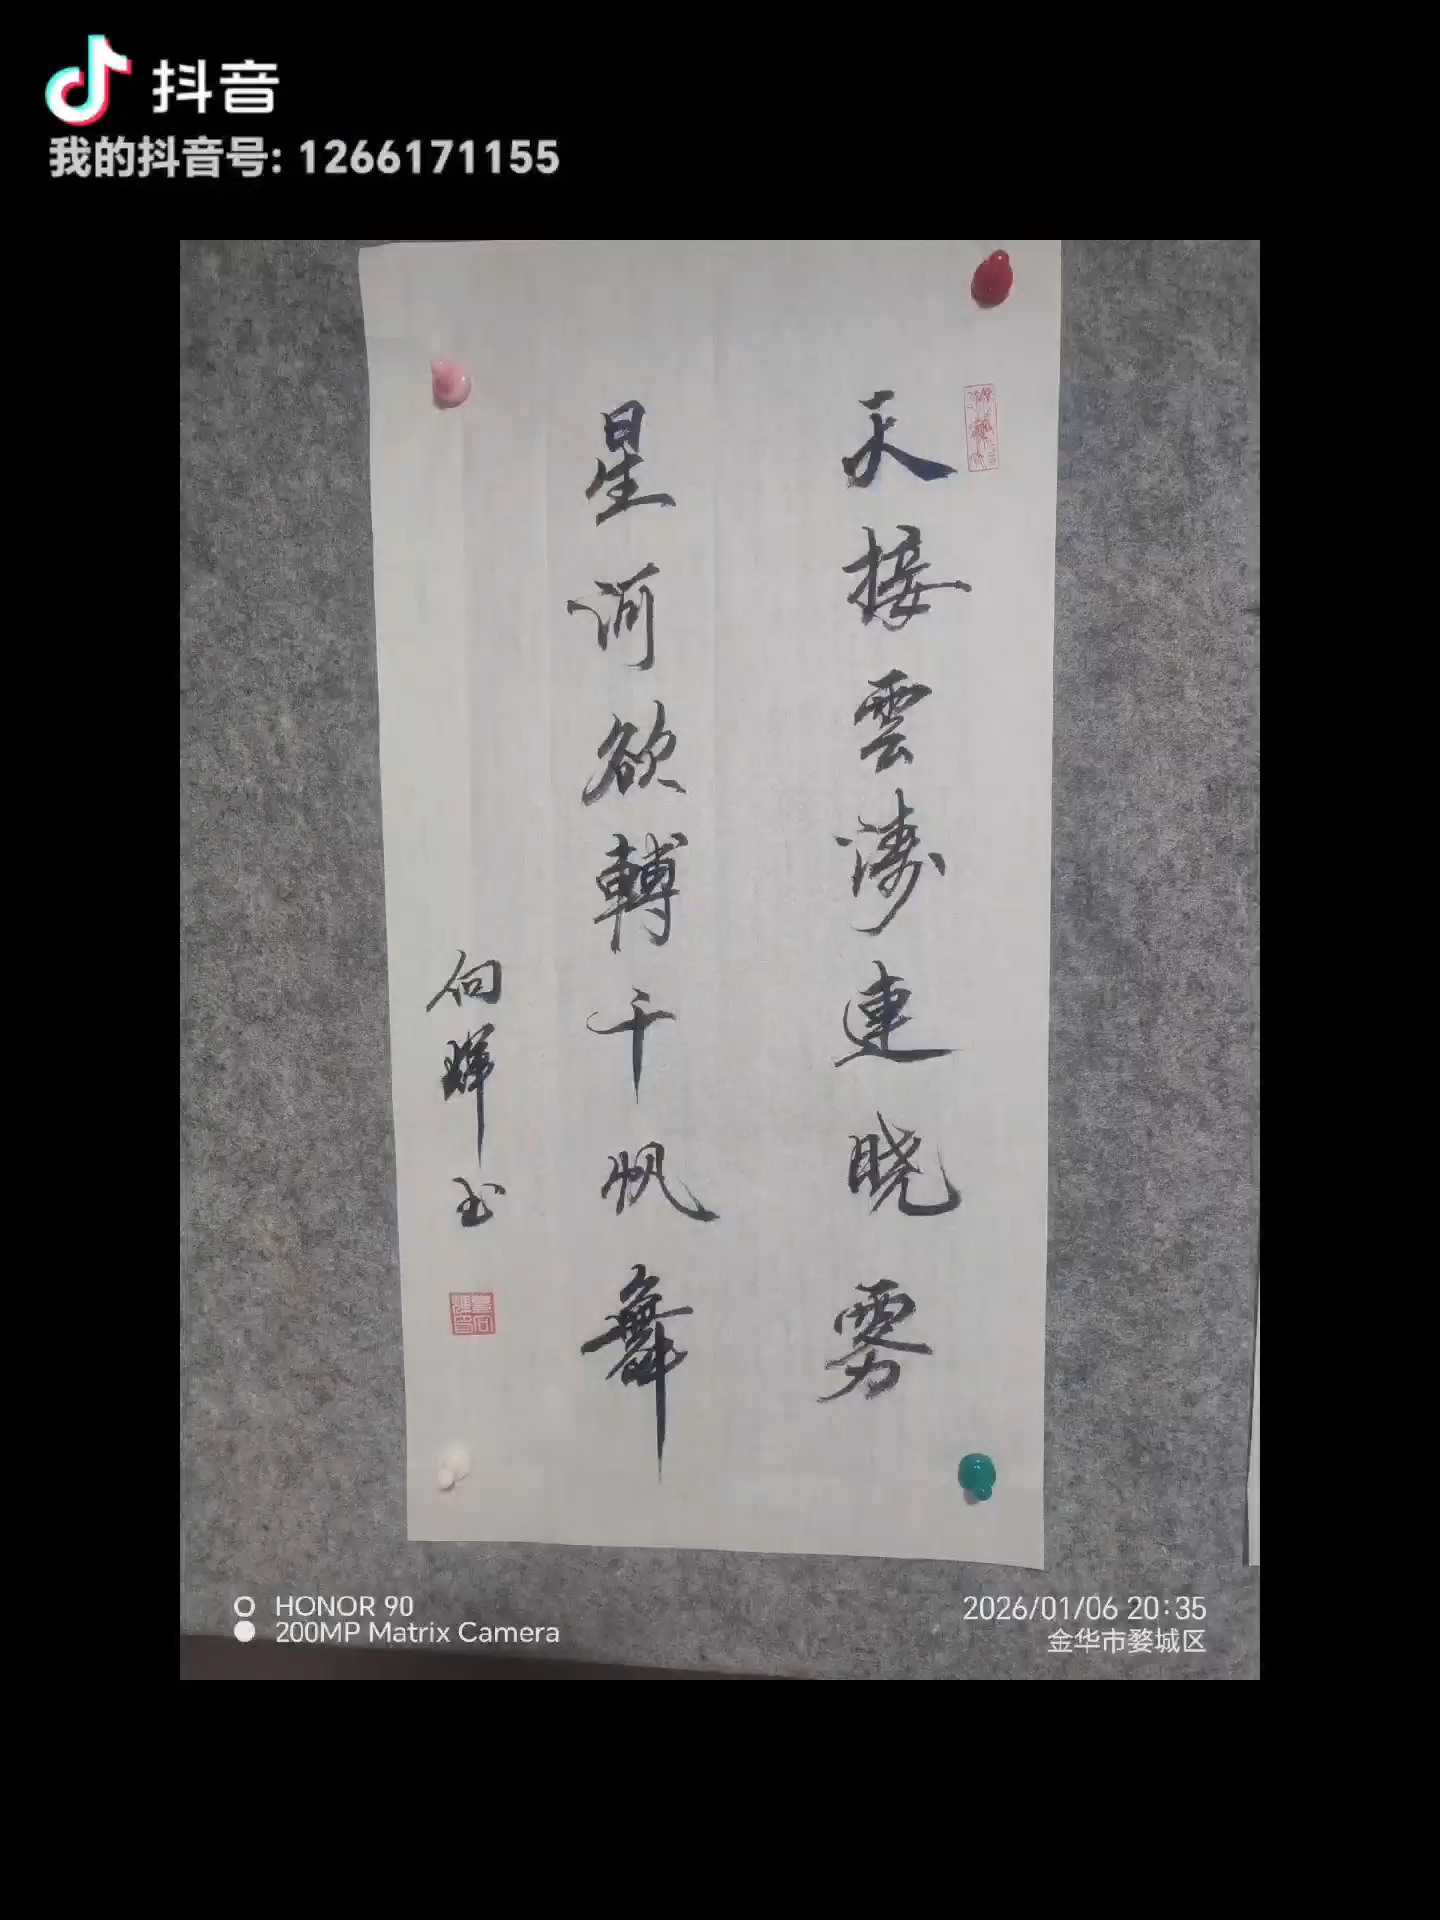 抖音
我的抖音号: 1266171155
天接雲涛連晓雾
星河欲轉千帆舞
向輝书
HONOR 90
200MP Matrix Camera
2026/01/06 20:35
金华市婺城区